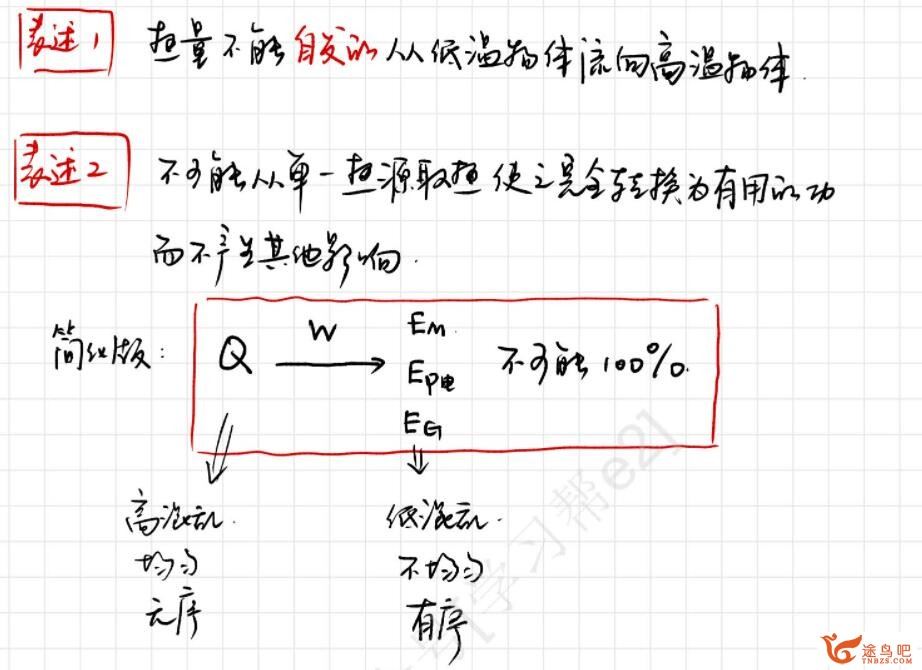 表述1 热量不能自发的从低温物体流向高温物体.
表述2 不可能从单一热源取热使之完全转换为有用的功
而不产生其他影响.
简化版: Q W Em. 不可能100%.
Ep电
EG
高混乱. 低混乱.
均匀 不均匀
无序 有序
学习帮e2]
途鸟吧
TNBZS.COM